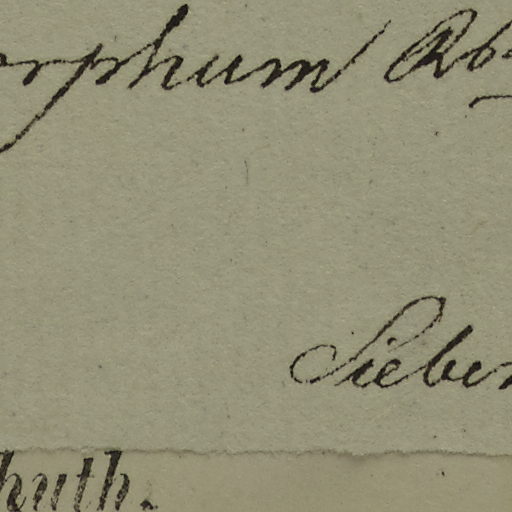 orphum Rb
Sieben
huth.